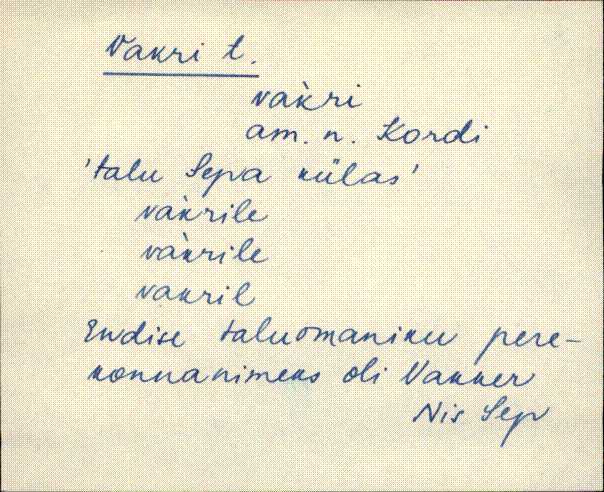 Vakri t.
vàkri
am. n. Kordi
'talu Sepa külas'
vàkrile
vàkrile
vakril
Endise taluomaniku pere-
konnanimeks oli Vakker
Nis Sep